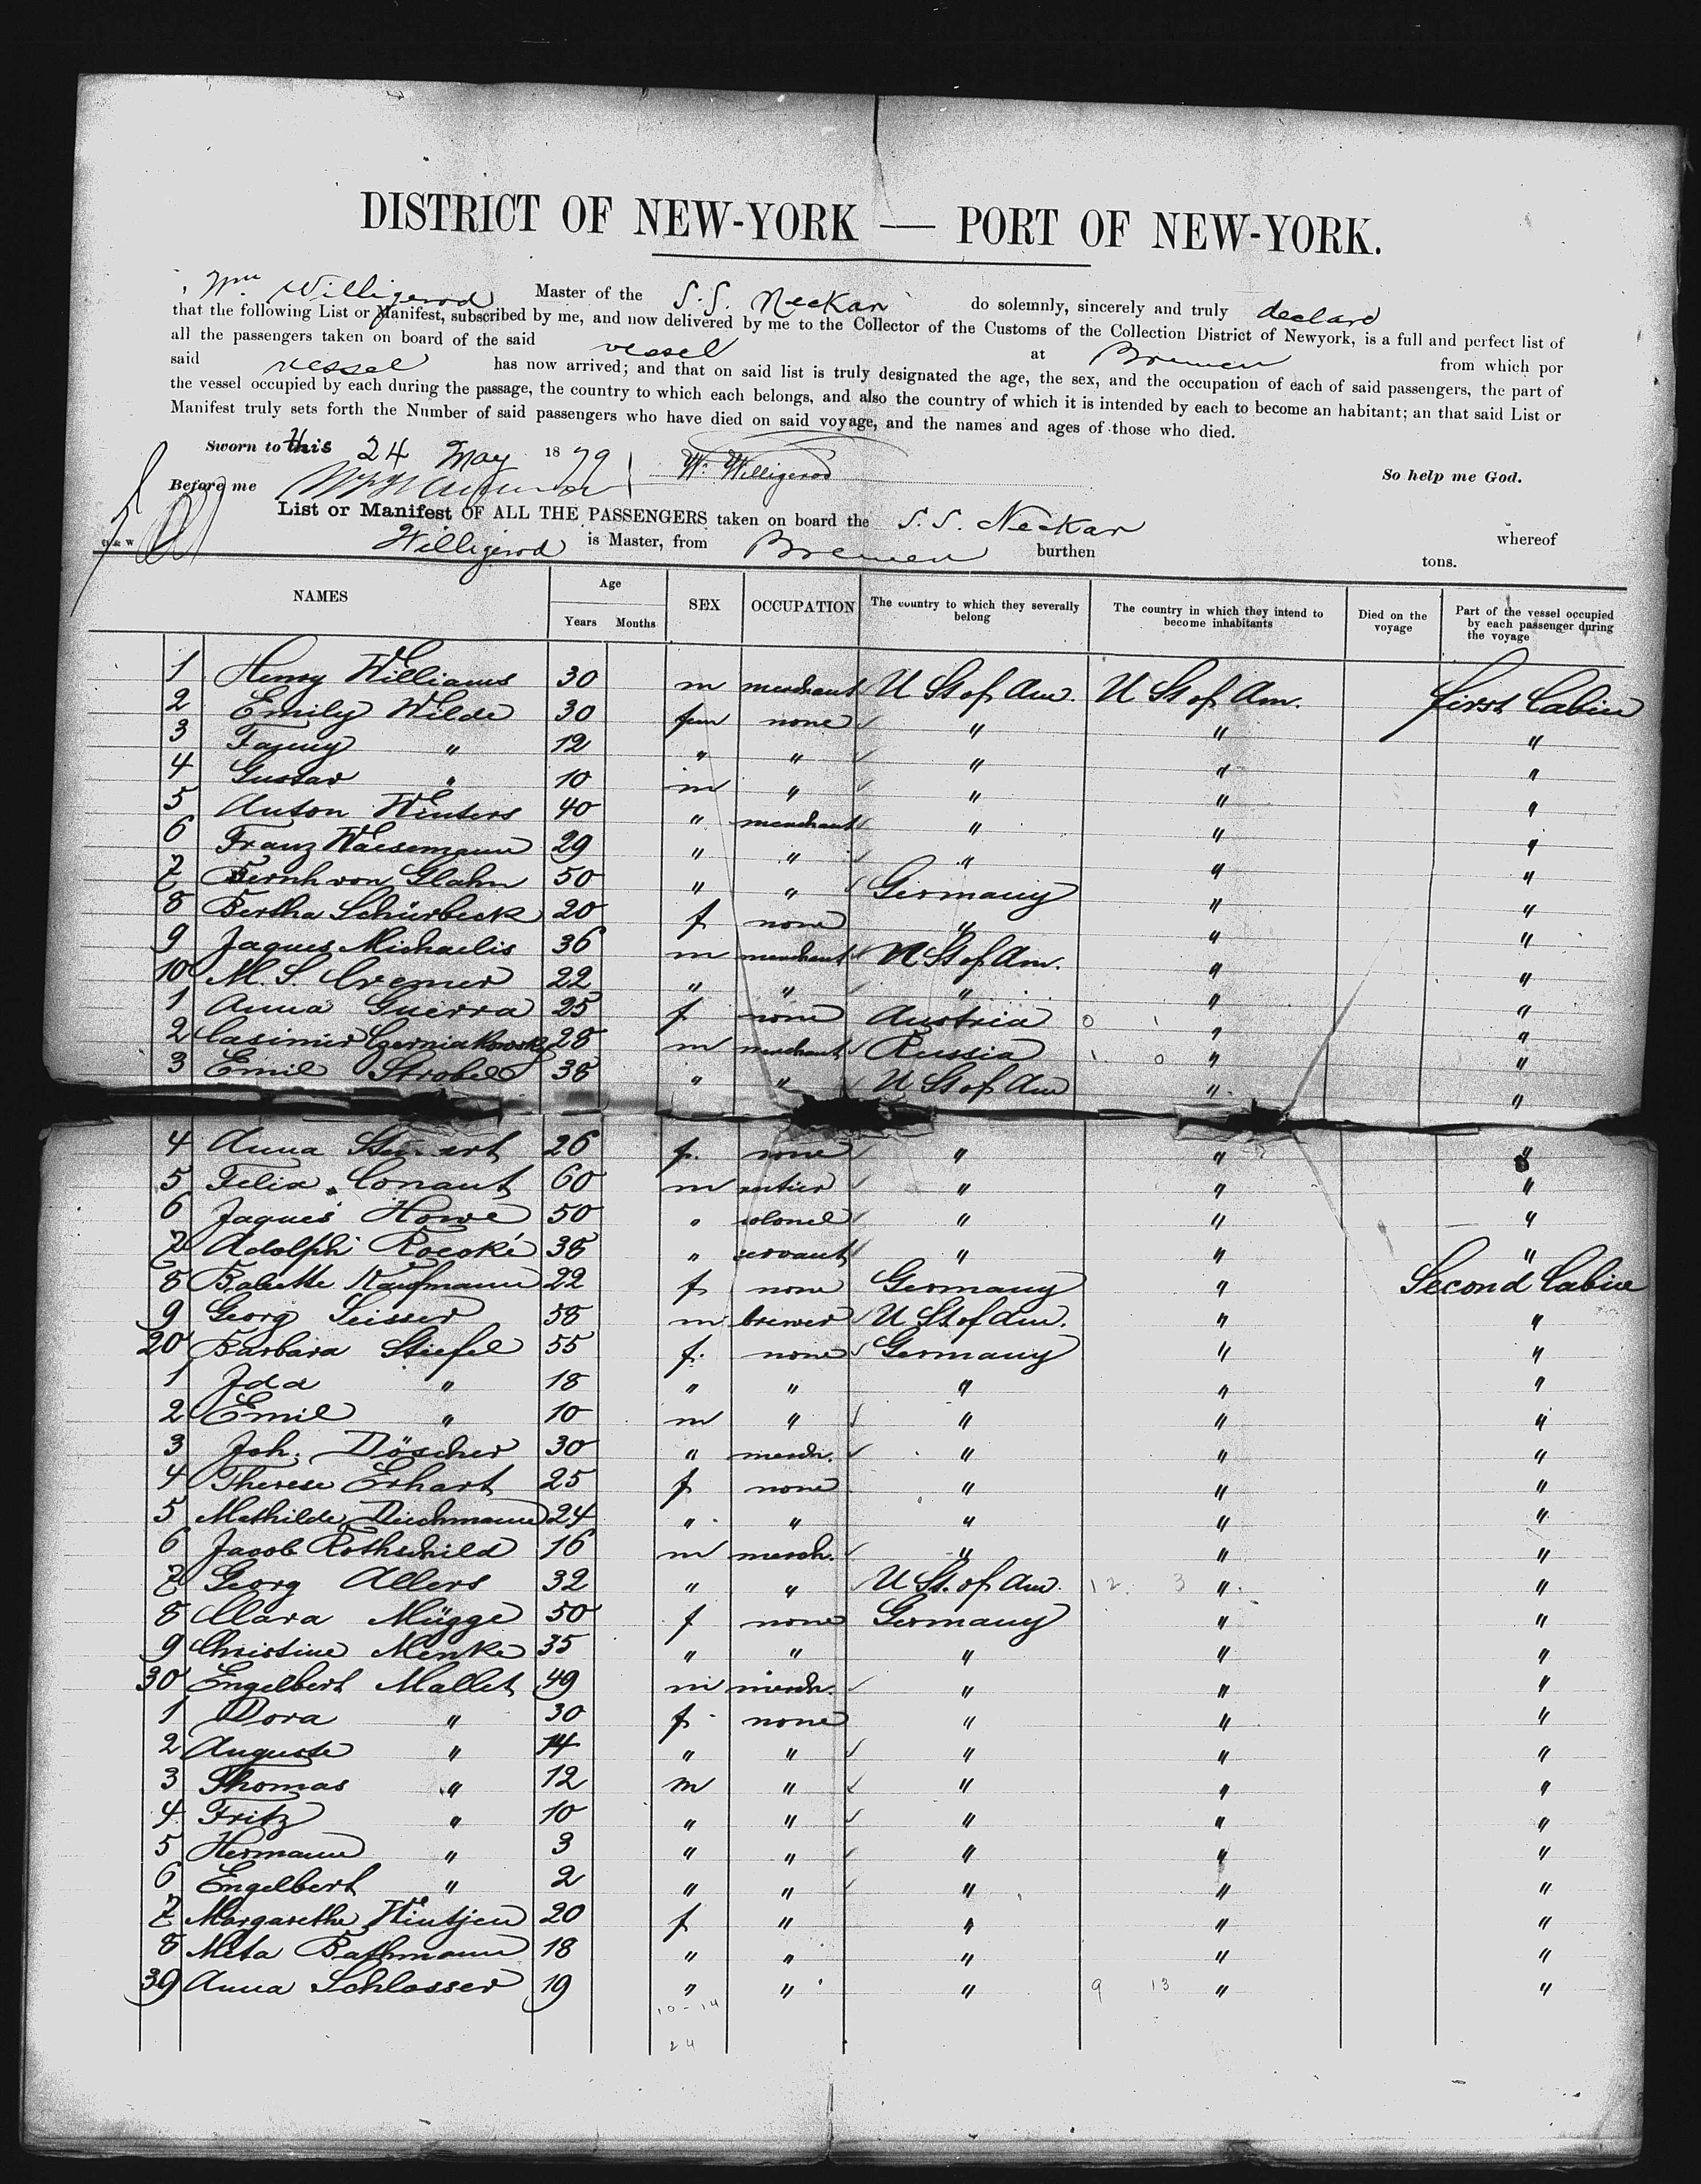 DISTRICT OF NEW-YORK — PORT OF NEW-YORK.
Wm Willigerod Master of the S.S. Neckar do solemnly, sincerely and truly declare
that the following List or Manifest, subscribed by me, and now delivered by me to the Collector of the Customs of the Collection District of Newyork, is a full and perfect list of
all the passengers taken on board of the said vessel at Bremen from which por
said vessel has now arrived; and that on said list is truly designated the age, the sex, and the occupation of each of said passengers, the part of
the vessel occupied by each during the passage, the country to which each belongs, and also the country of which it is intended by each to become an habitant; an that said List or
Manifest truly sets forth the Number of said passengers who have died on said voyage, and the names and ages of those who died.
Sworn to this 24 May 1879 W. Willigerod So help me God.
Before me
List or Manifest OF ALL THE PASSENGERS taken on board the S.S. Neckar whereof
Willigerod is Master, from Bremen burthen tons.
NAMES Age Years Months SEX OCCUPATION The country to which they severally belong The country in which they intend to become inhabitants Died on the voyage Part of the vessel occupied by each passenger during the voyage
1 Henry Williams 30 m merchant U St of Am. U St of Am. First Cabin
2 Emily Wilde 30 fem none " " "
3 " 12 " " " " "
4 Gustav " 10 m " " " "
5 Anton Winters 40 " merchant " " "
6 Franz Waesemann 29 " " " " "
7 Bernh von Glahn 50 " " Germany " "
8 Bertha Schürbeck 20 f none " " "
9 Jaques Michaelis 36 m merchant U St of Am. " "
10 M. S. Cremer 22 " " " " "
1 Anna Guerra 25 f none Austria " "
2 Casimir Czerniakowsky 28 m merchant Russia " "
3 Emil Strobel 38 " " U St of Am " "
4 Anna 26 f. none " " "
5 Felix Conant 60 m rentier " " "
6 Jaques Howe 50 " colonel " " "
7 Adolph Rocoké 38 " servant " " "
8 Babette Kaufmann 22 f none Germany " Second Cabin
9 Georg Seisser 58 m brewer U St of Am. " "
20 Barbara Stiefel 55 f. none Germany " "
1 Ida " 18 " " " " "
2 Emil " 10 m " " " "
3 Joh. Döscher 30 " merch. " " "
4 Therese Erhart 25 f none " " "
5 Mathilde Diechmann 24 " " " " "
6 Jacob Rothschild 16 m merch. " " "
7 Georg Allers 32 " " U St. of Am. 12. 3 " "
8 Clara Mügge 50 f none Germany " "
9 Christine Menke 35 " " " " "
30 Engelbert Mallet 49 m merch. " " "
1 Dora " 30 f none " " "
2 Auguste " 14 " " " " "
3 Thomas " 12 m " " " "
4 Fritz " 10 " " " " "
5 Hermann " 3 " " " " "
6 Engelbert " 2 " " " " "
7 Margarethe Wintjen 20 f " " " "
8 Meta Bathmann 18 " " " " "
39 Anna Schlosser 19 " " " 9 13 " "
10-14
24